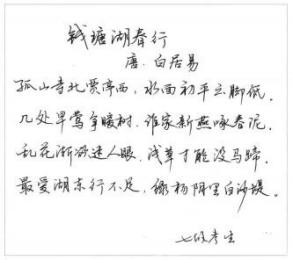 钱塘湖春行
唐·白居易
孤山寺北贾亭西，水面初平云脚低。
几处早莺争暖树，谁家新燕啄春泥。
乱花渐欲迷人眼，浅草才能没马蹄。
最爱湖东行不足，绿杨阴里白沙堤。
七级考生